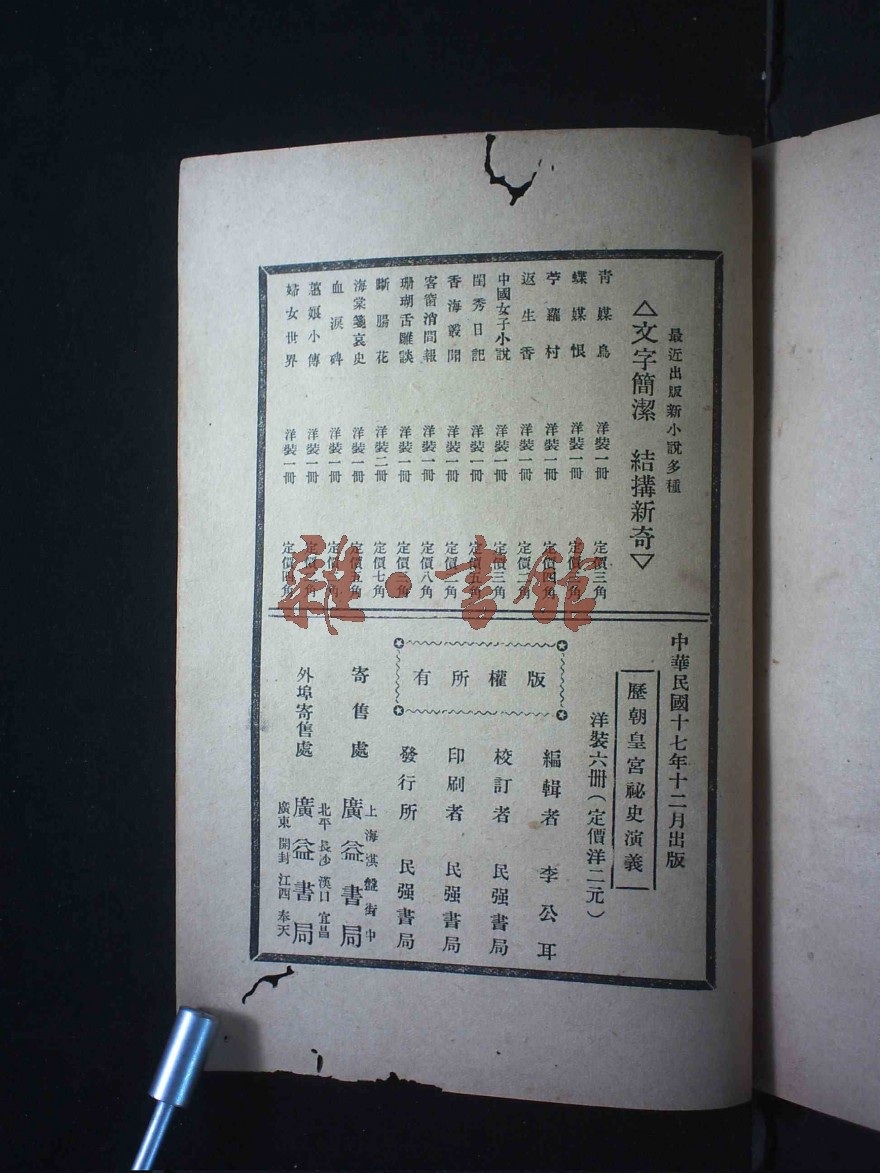 最近出版新小說多種
△文字簡潔 結搆新奇▽
青媒鳥 洋裝一冊 定價三角
蝶媒恨 洋裝一冊 定價角
苧蘿村 洋裝一冊 定價四角
返生香 洋裝一冊 定價二角
中國女子小說 洋裝一冊 定價三角
閨秀日記 洋裝一冊 定價五角
香海叢聞 洋裝一冊 定價角
客窗消閒報 洋裝一冊 定價八角
珊瑚舌雕談 洋裝一冊 定價角
斷腸花 洋裝二冊 定價七角
海棠箋哀史 洋裝一冊 定價五角
血淚碑 洋裝一冊 定價角
蕙娘小傳 洋裝一冊 定價角
婦女世界 洋裝一冊 定價四角
雜·書館
中華民國十七年十二月出版
歷朝皇宮祕史演義
洋裝六冊(定價洋二元)
版權所有
編輯者 李公耳
校訂者 民强書局
印刷者 民强書局
發行所 民强書局
寄售處 上海淇盤街中 廣益書局
外埠寄售處 北平 長沙 漢口 宜昌 廣益書局
廣東 開封 江西 奉天